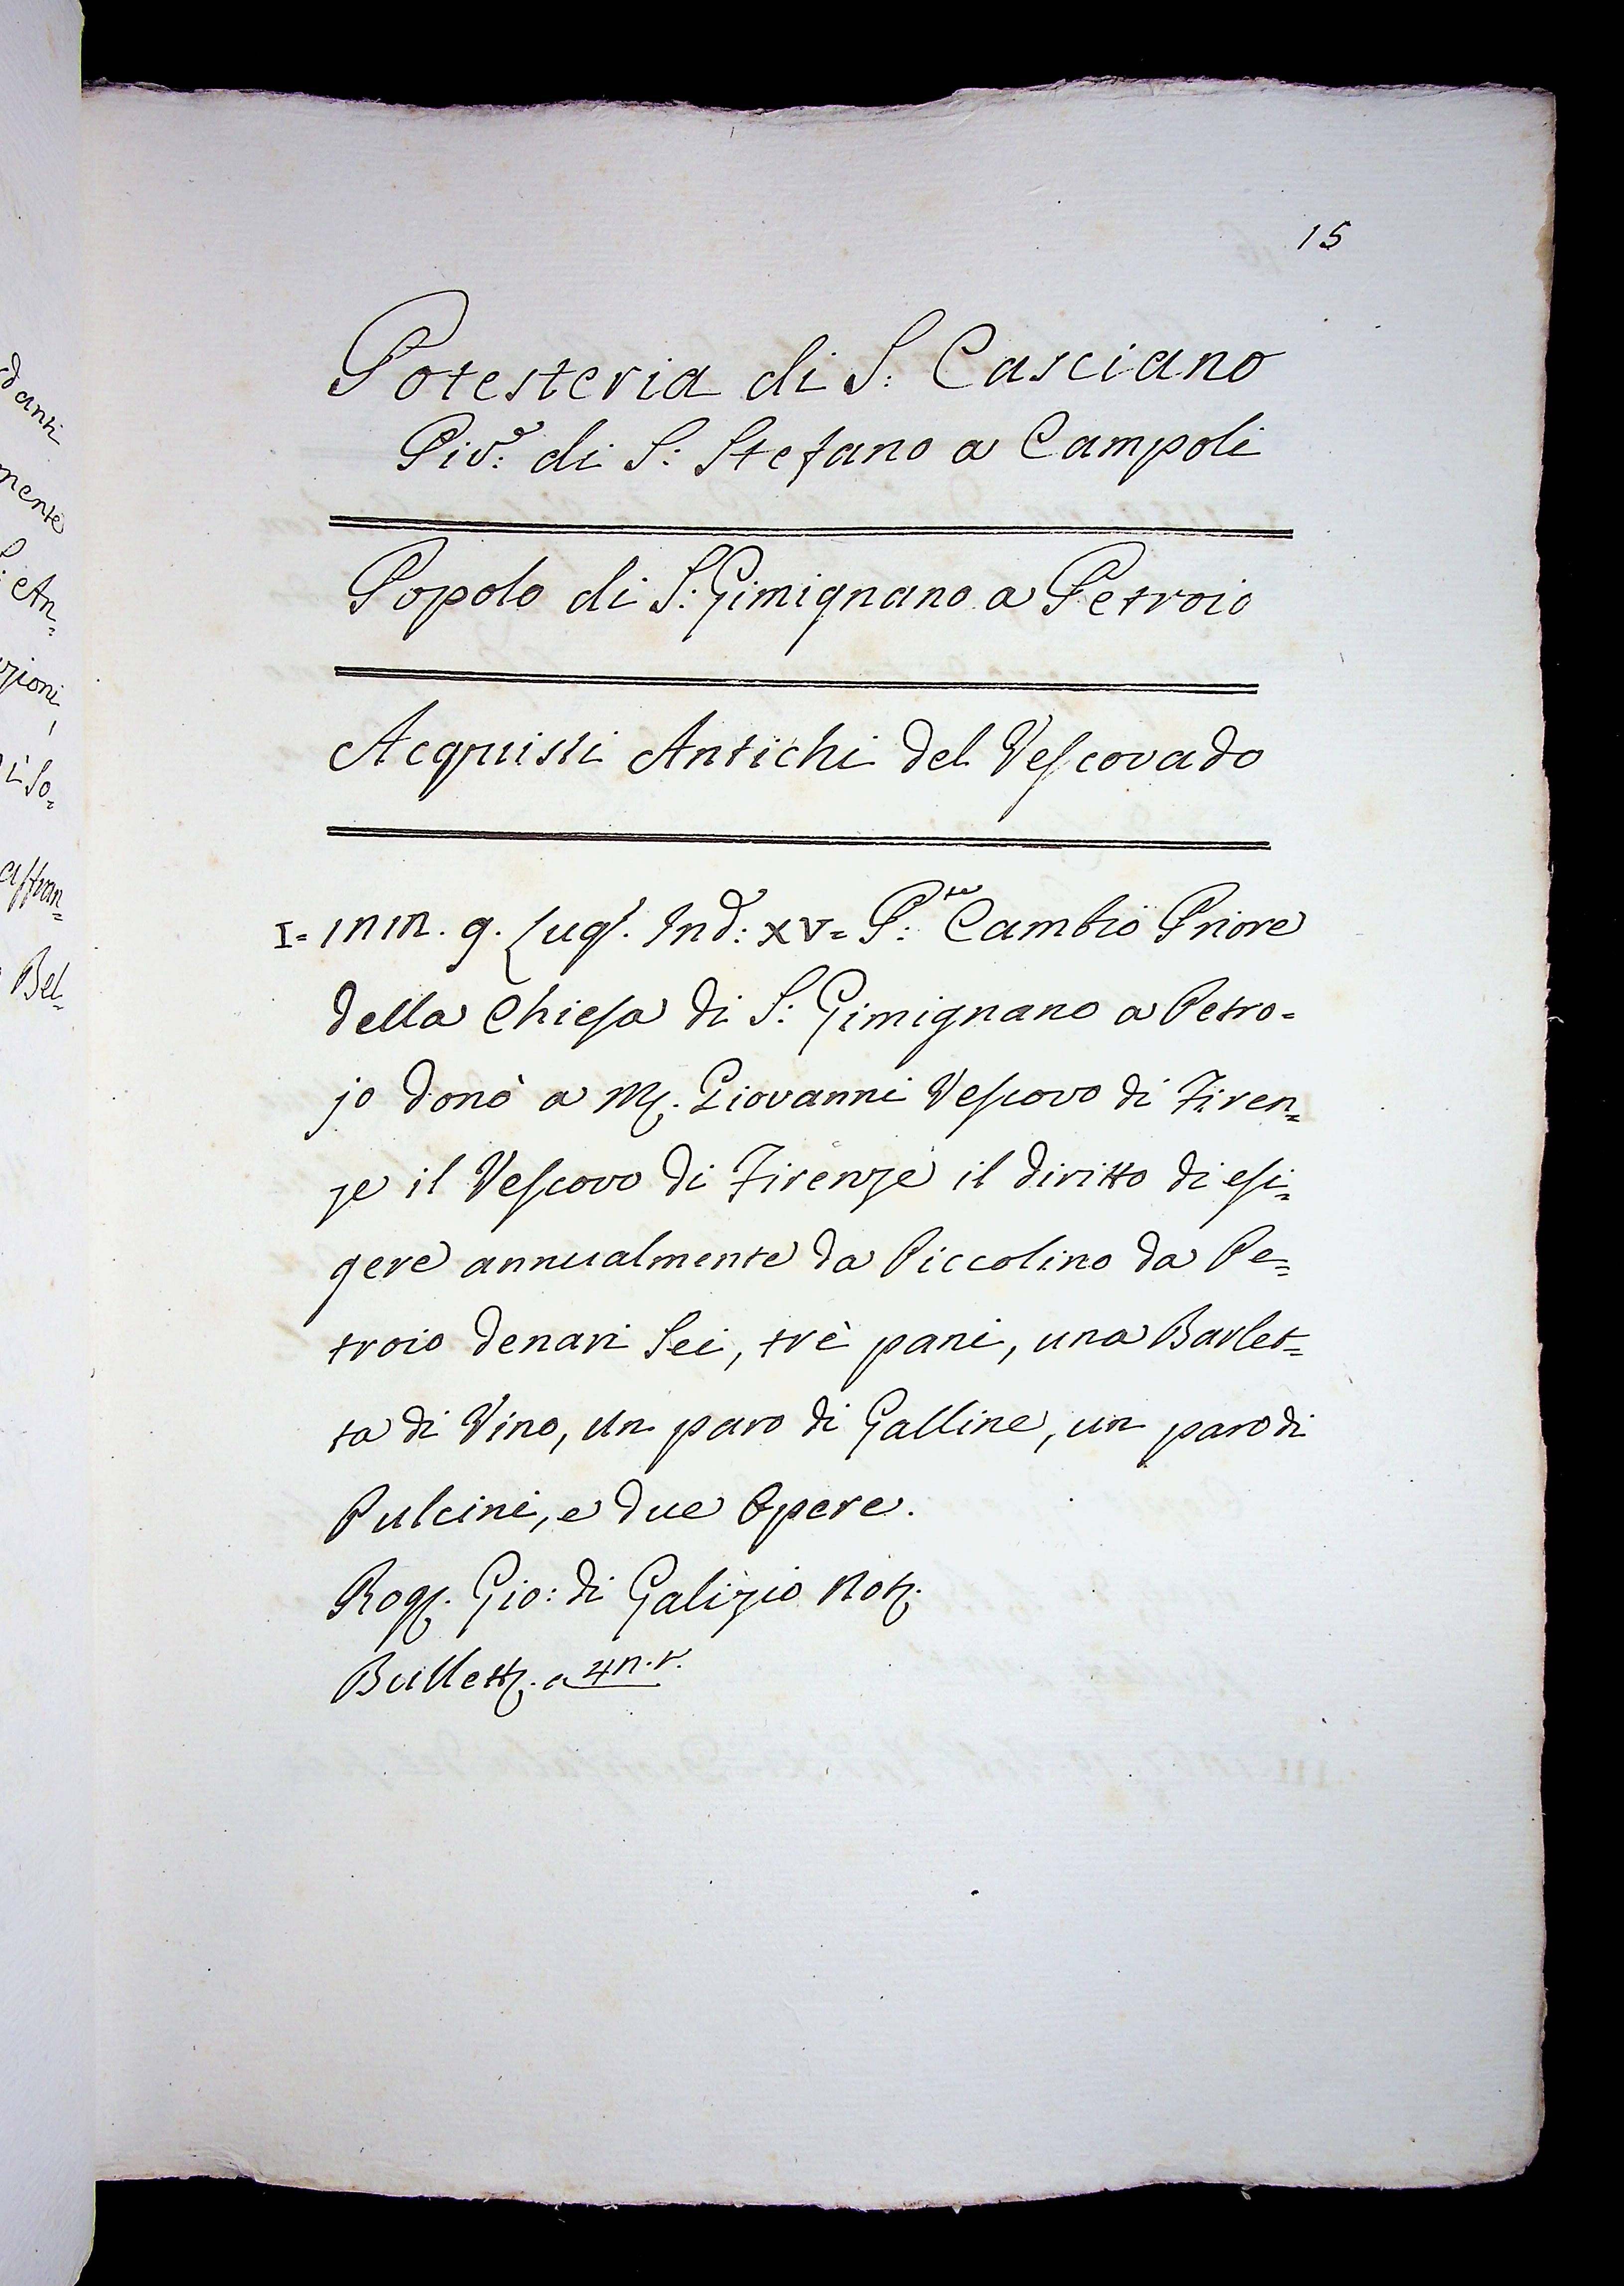 15
Potesteria di S: Casciano
Piv:e di S: Stefano a Campoli
Popolo di S: Gimignano a Petroio
Acquisti Antichi del Vescovado
I= 1212. 9. Lugl. Ind: XV= P:te Cambio Priore
della Chiesa di S: Gimignano a Petro=
jo donò a M. Giovanni Vescovo di Firen=
ze il Vescovo di Firenze il diritto di esi=
gere annualmente da Piccolino da Pe=
troio denari Sei, trè pani, una Barlet=
ta di Vino, un paro di Galline, un paro di
Pulcini, e due Opere.
Rog. Gio: di Galizio Not.
Bullett. a 42. r.